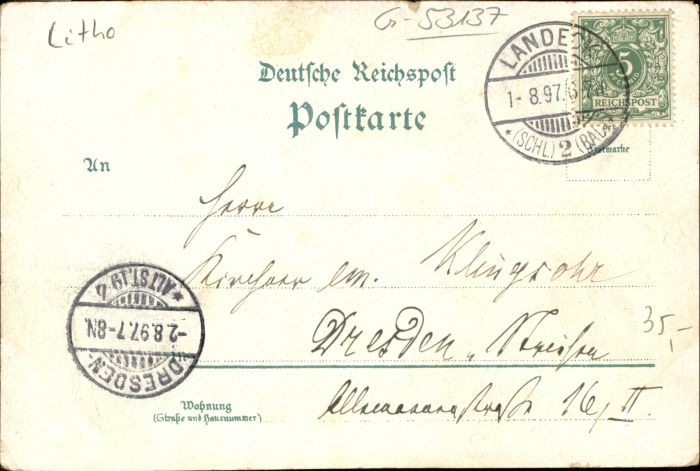 Litho
G-53137
Deutsche Reichspost
Postkarte
LANDECK
1-8.97. 6-7N
*(SCHL) 2 (BAD)*
5
PFENNIG
REICHSPOST
An
Herrn
Kirchner em. Klingsohr
Dresden, Striesen
16, II.
35,-
DRESDEN-
-2.8.97.7-8N.
*ALTST.19.z
Wohnung
(Straße und Hausnummer)